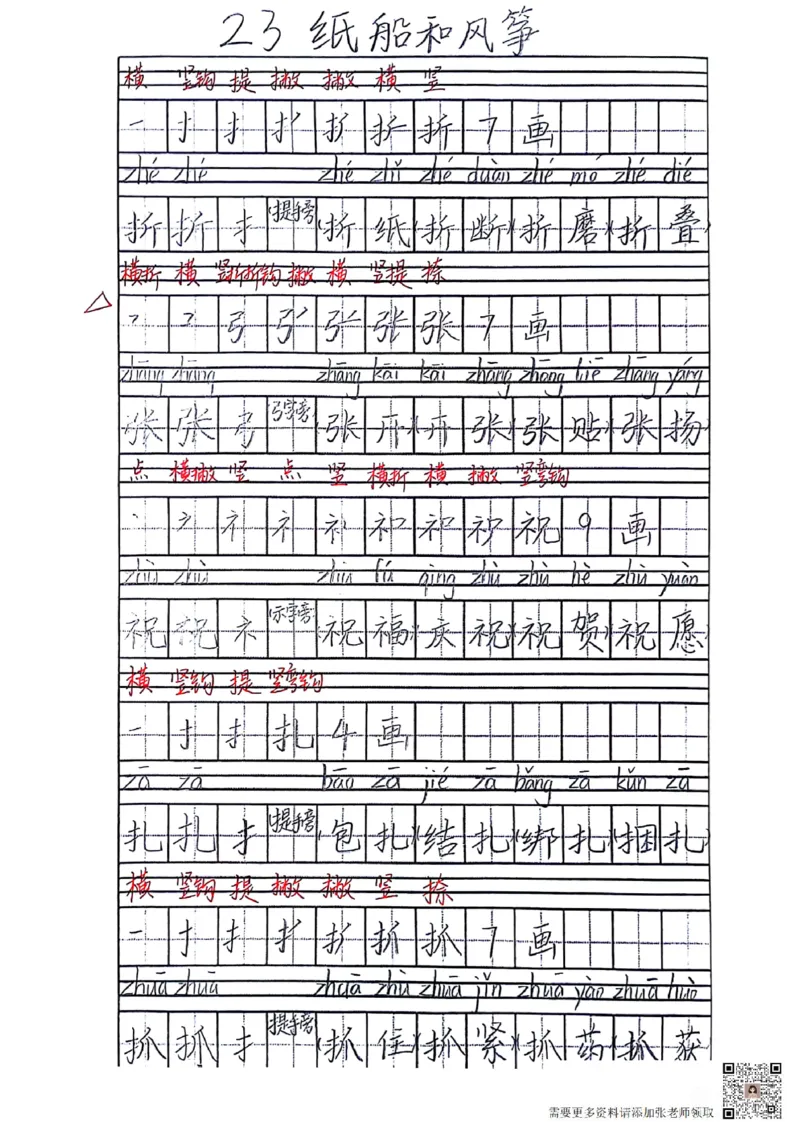 23 纸船和风筝
横 竖钩 提 撇 撇 横 竖
一 扌 扌 折 7 画
zhé zhé zhé zhǐ zhé duàn zhé mó zhé dié
折 折 扌 (提手旁) (折 纸)(折 断)(折 磨)(折 叠)
横折 横 竖折折钩 撇 横 竖提 捺
弓 张 7 画
zhāng zhāng zhāng kāi kāi zhāng zhāng tiē zhāng yáng
张 张 弓 (弓字旁) (张 开)(开 张)(张 贴)(张 扬)
点 横撇 竖 点 竖 横折 横 撇 竖弯钩
礻 祝 9 画
zhù zhù zhù fú qìng zhù zhù hè zhù yuàn
祝 祝 礻 (示字旁) (祝 福)(庆 祝)(祝 贺)(祝 愿)
横 竖钩 提 竖弯钩
一 扌 扎 4 画
zā zā bāo zā jié zā bǎng zā kǔn zā
扎 扎 扌 (提手旁) (包 扎)(结 扎)(绑 扎)(捆 扎)
横 竖钩 提 撇 撇 竖 捺
一 扌 扌 抓 7 画
zhuā zhuā zhuā zhù zhuā jǐn zhuā yào zhuā huò
抓 抓 扌 (提手旁) (抓 住)(抓 紧)(抓 药)(抓 获)
需要更多资料请添加张老师领取